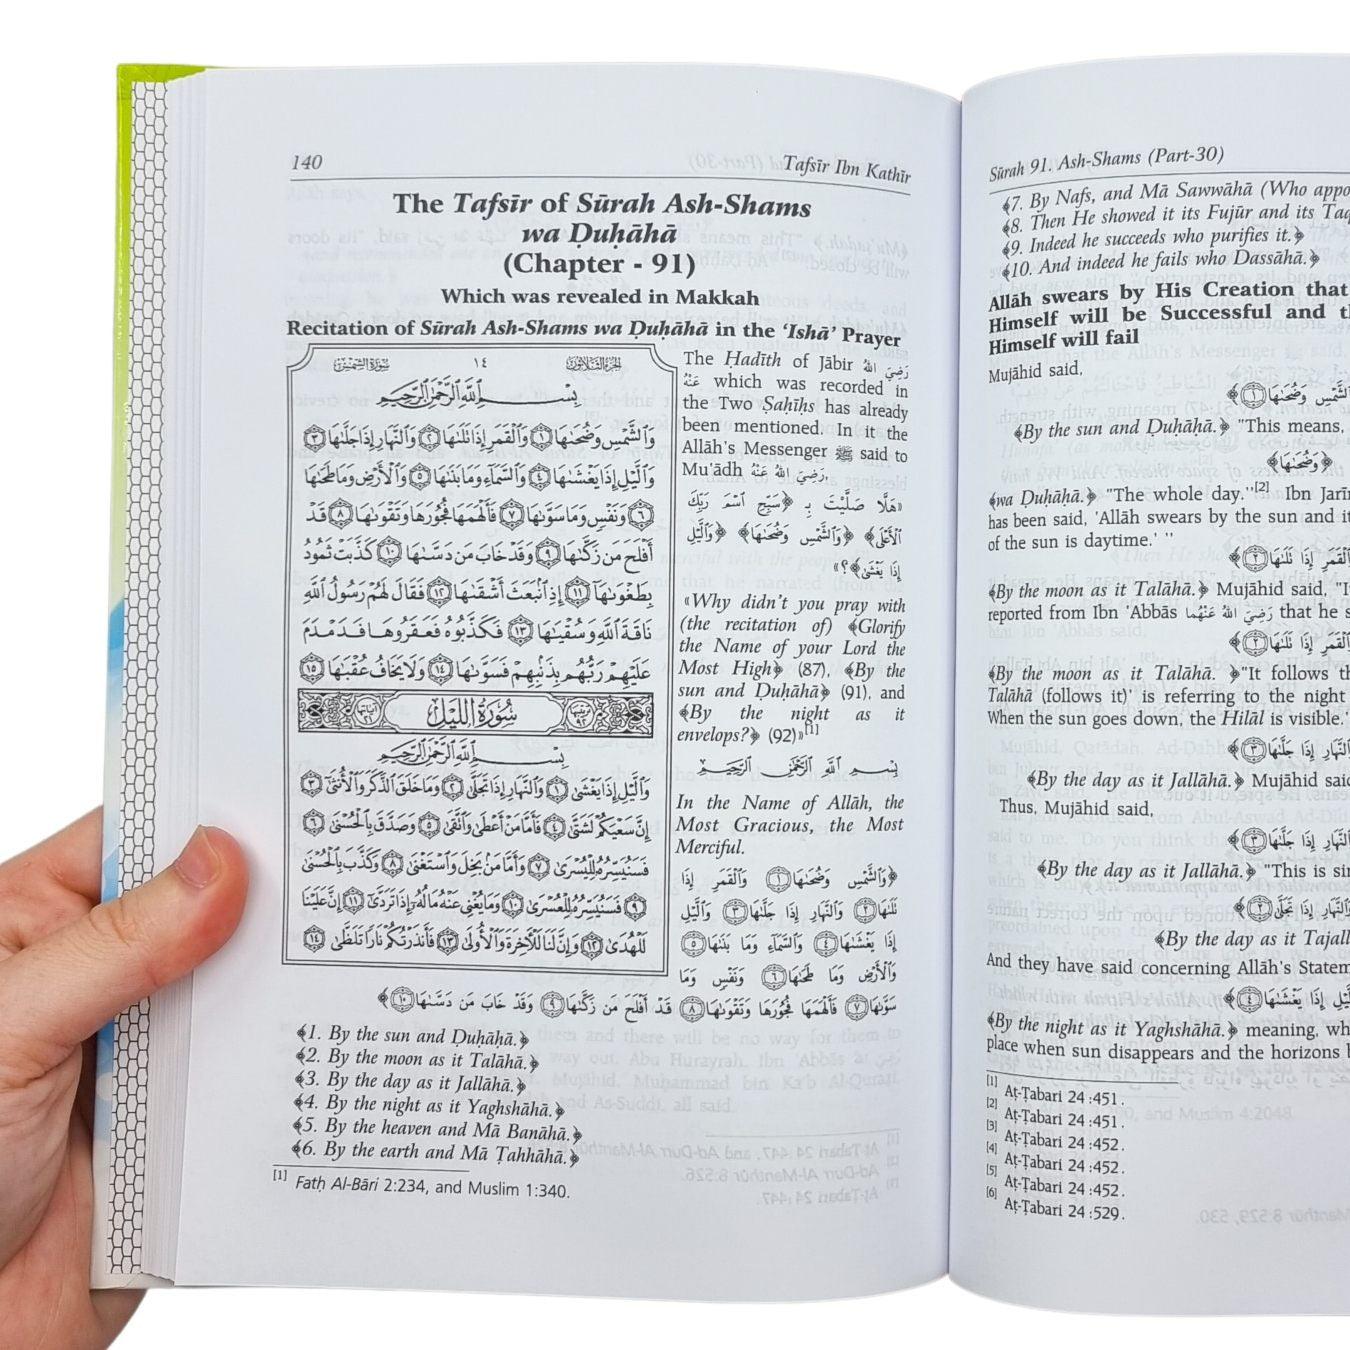 140
Tafsīr Ibn Kathīr
The Tafsīr of Sūrah Ash-Shams
wa Ḍuḥāhā
(Chapter - 91)
Which was revealed in Makkah
Recitation of Sūrah Ash-Shams wa Ḍuḥāhā in the ‘Ishā’ Prayer
سورة الشمس ١٤ الجزء الثلاثون
بِسْمِ اللَّهِ الرَّحْمَٰنِ الرَّحِيمِ
وَالشَّمْسِ وَضُحَىٰهَا ١ وَالْقَمَرِ إِذَا تَلَىٰهَا ٢ وَالنَّهَارِ إِذَا جَلَّىٰهَا ٣
وَالَّيْلِ إِذَا يَغْشَىٰهَا ٤ وَالسَّمَآءِ وَمَا بَنَىٰهَا ٥ وَالْأَرْضِ وَمَا طَحَىٰهَا
٦ وَنَفْسٍ وَمَا سَوَّىٰهَا ٧ فَأَلْهَمَهَا فُجُورَهَا وَتَقْوَىٰهَا ٨ قَدْ
أَفْلَحَ مَن زَكَّىٰهَا ٩ وَقَدْ خَابَ مَن دَسَّىٰهَا ١٠ كَذَّبَتْ ثَمُودُ
بِطَغْوَىٰهَا ١١ إِذِ انۢبَعَثَ أَشْقَىٰهَا ١٢ فَقَالَ لَهُمْ رَسُولُ اللَّهِ
نَاقَةَ اللَّهِ وَسُقْيَٰهَا ١٣ فَكَذَّبُوهُ فَعَقَرُوهَا فَدَمْدَمَ
عَلَيْهِمْ رَبُّهُم بِذَنۢبِهِمْ فَسَوَّىٰهَا ١٤ وَلَا يَخَافُ عُقْبَٰهَا ١٥
سُورَةُ اللَّيْلِ
بِسْمِ اللَّهِ الرَّحْمَٰنِ الرَّحِيمِ
وَالَّيْلِ إِذَا يَغْشَىٰ ١ وَالنَّهَارِ إِذَا تَجَلَّىٰ ٢ وَمَا خَلَقَ الذَّكَرَ وَالْأُنثَىٰٓ ٣
إِنَّ سَعْيَكُمْ لَشَتَّىٰ ٤ فَأَمَّا مَنْ أَعْطَىٰ وَاتَّقَىٰ ٥ وَصَدَّقَ بِالْحُسْنَىٰ ٦
فَسَنُيَسِّرُهُۥ لِلْيُسْرَىٰ ٧ وَأَمَّا مَنۢ بَخِلَ وَاسْتَغْنَىٰ ٨ وَكَذَّبَ بِالْحُسْنَىٰ
٩ فَسَنُيَسِّرُهُۥ لِلْعُسْرَىٰ ١٠ وَمَا يُغْنِى عَنْهُ مَالُهُۥٓ إِذَا تَرَدَّىٰٓ ١١ إِنَّ عَلَيْنَا
لَلْهُدَىٰ ١٢ وَإِنَّ لَنَا لَلْءَاخِرَةَ وَالْأُولَىٰ ١٣ فَأَنذَرْتُكُمْ نَارًا تَلَظَّىٰ ١٤
The Ḥadīth of Jābir رَضِيَ اللهُ
عَنْهُ which was recorded in
the Two Ṣaḥīḥs has already
been mentioned. In it the
Allāh's Messenger ﷺ said to
Mu'ādh رَضِيَ اللهُ عَنْهُ,
«هَلَّا صَلَّيْتَ بِـ ﴿سَبِّحِ اسْمَ رَبِّكَ
الْأَعْلَى﴾ ﴿وَالشَّمْسِ وَضُحَىٰهَا﴾ ﴿وَالَّيْلِ
إِذَا يَغْشَىٰ﴾؟»
«Why didn't you pray with
(the recitation of) ﴾Glorify
the Name of your Lord the
Most High﴿ (87), ﴾By the
sun and Ḍuḥāhā﴿ (91), and
﴾By the night as it
envelops?﴿ (92)»[1]
بِسْمِ اللَّهِ الرَّحْمَٰنِ الرَّحِيمِ
In the Name of Allāh, the
Most Gracious, the Most
Merciful.
﴿وَالشَّمْسِ وَضُحَىٰهَا ١ وَالْقَمَرِ إِذَا
تَلَىٰهَا ٢ وَالنَّهَارِ إِذَا جَلَّىٰهَا ٣ وَالَّيْلِ
إِذَا يَغْشَىٰهَا ٤ وَالسَّمَآءِ وَمَا بَنَىٰهَا ٥
وَالْأَرْضِ وَمَا طَحَىٰهَا ٦ وَنَفْسٍ وَمَا
سَوَّىٰهَا ٧ فَأَلْهَمَهَا فُجُورَهَا وَتَقْوَىٰهَا ٨ قَدْ أَفْلَحَ مَن زَكَّىٰهَا ٩ وَقَدْ خَابَ مَن دَسَّىٰهَا ١٠﴾
﴾1. By the sun and Ḍuḥāhā.﴿
﴾2. By the moon as it Talāhā.﴿
﴾3. By the day as it Jallāhā.﴿
﴾4. By the night as it Yaghshāhā.﴿
﴾5. By the heaven and Mā Banāhā.﴿
﴾6. By the earth and Mā Ṭahhāhā.﴿
[1] Fatḥ Al-Bāri 2:234, and Muslim 1:340.
Sūrah 91. Ash-Shams (Part-30)
﴾7. By Nafs, and Mā Sawwāhā (Who appo
﴾8. Then He showed it its Fujūr and its Taq
﴾9. Indeed he succeeds who purifies it.﴿
﴾10. And indeed he fails who Dassāhā.﴿
Allāh swears by His Creation that
Himself will be Successful and th
Himself will fail
Mujāhid said,
الشَّمْسِ وَضُحَىٰهَا ١﴾
﴾By the sun and Ḍuḥāhā.﴿ "This means,
﴿وَضُحَىٰهَا﴾
﴾wa Ḍuḥāhā.﴿ "The whole day."[2] Ibn Jarīr
has been said, 'Allāh swears by the sun and it
of the sun is daytime.' "
الْقَمَرِ إِذَا تَلَىٰهَا ٢﴾
﴾By the moon as it Talāhā.﴿ Mujāhid said, "I
reported from Ibn 'Abbās رَضِيَ اللهُ عَنْهُما that he s
الْقَمَرِ إِذَا تَلَىٰهَا ٢﴾
﴾By the moon as it Talāhā. ﴿"It follows th
Talāhā (follows it)' is referring to the night
When the sun goes down, the Hilāl is visible.'
النَّهَارِ إِذَا جَلَّىٰهَا ٣﴾
﴾By the day as it Jallāhā.﴿ Mujāhid said
Thus, Mujāhid said,
النَّهَارِ إِذَا جَلَّىٰهَا ٣﴾
﴾By the day as it Jallāhā.﴿ "This is sim
النَّهَارِ إِذَا تَجَلَّىٰ ٢﴾
﴾By the day as it Tajall
And they have said concerning Allāh's Statem
لَّيْلِ إِذَا يَغْشَىٰهَا ٤﴾
﴾By the night as it Yaghshāhā.﴿ meaning, wh
place when sun disappears and the horizons b
[1] Aṭ-Ṭabari 24:451.
[2] Aṭ-Ṭabari 24:451.
[3] Aṭ-Ṭabari 24:452.
[4] Aṭ-Ṭabari 24:452.
[5] Aṭ-Ṭabari 24:452.
[6] Aṭ-Ṭabari 24:529.